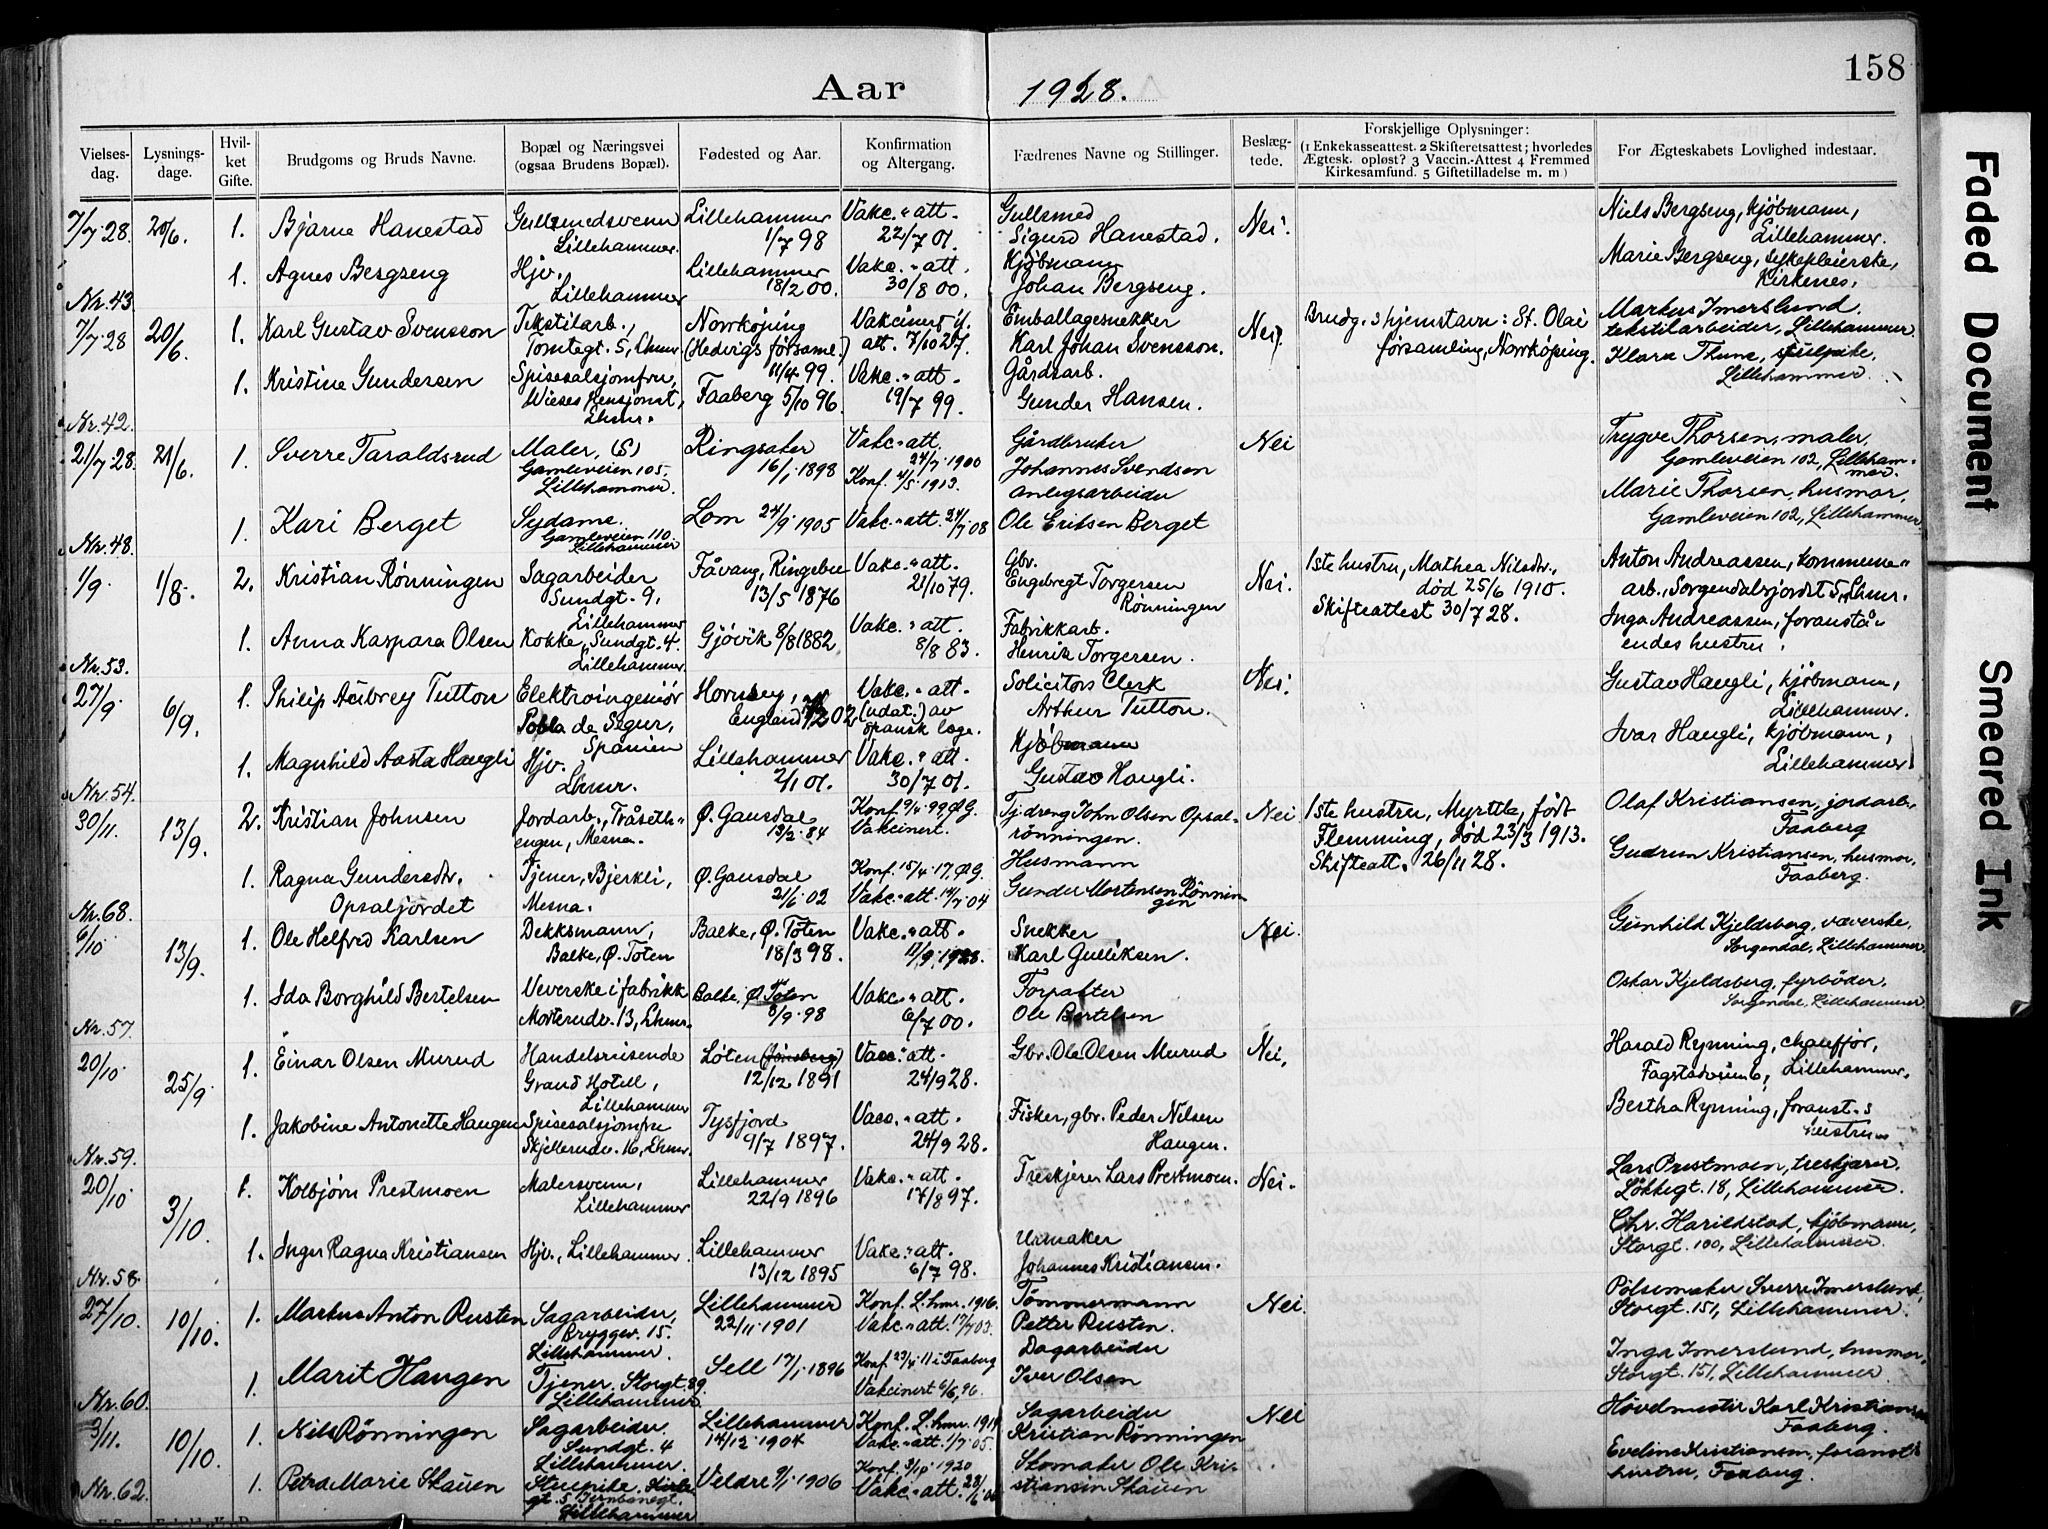 158
Aar 1928.
Vielses-dag.
Lysnings-dage.
Hvil-ket Gifte.
Brudgoms og Bruds Navne.
Bopæl og Næringsvei (ogsaa Brudens Bopæl).
Fødested og Aar.
Konfirmation og Altergang.
Fædrenes Navne og Stillinger.
Beslæg-tede.
Forskjellige Oplysninger:
(1 Enkekasseattest. 2 Skifteretsattest; hvorledes
Ægtesk. opløst? 3 Vaccin.-Attest 4 Fremmed
Kirkesamfund. 5 Giftetilladelse m. m)
For Ægteskabets Lovlighed indestaar.
7/7 28. 20/6. 1. Bjarne Hanestad Gullsmedsvenn Lillehammer. Lillehammer 1/7 98 Vakc. att. 22/7 01. Gullsmed Sigurd Hanestad. Nei. Niels Bergseng, kjøbmann, Lillehammer.
Nr. 43. 1. Agnes Bergseng Hjv., Lillehammer Lillehammer 18/2 00. Vakc. att. 30/8 00. Kjøbmann Johan Bergseng. Marie Bergseng, sykepleierske, Kirkenes.
7/7 28 20/6. 1. Karl Gustav Svensson Tekstilarb., Tomtegt. 5, Lhmr. Norrköping (Hedvigs församl.) 11/4 99. Vakcinert if. att. 7/10 27. Emballagesnekker Karl Johan Svensson. Nei. Brudg.s hjemstavn: St. Olai församling, Norrköping. Markus Imerslund, tekstilarbeider, Lillehammer.
Nr. 42. 1. Kristine Gundersen Spisesalsjomfru, Wieses Pensjonat, Lhmr. Faaberg 5/10 96. Vakc. att. 19/7 99. Gårdsarb. Gunder Hansen. Klara Thune, Lillehammer.
21/7 28. 21/6. 1. Sverre Taraldsrud Maler, (S) Gamleveien 105, Lillehammer. Ringsaker 16/1 1898 Vakc. att. 24/7 1900 Konf. 4/5 1913. Gårdbruker Johannes Svendsen Nei Trygve Thorsen, maler, Gamleveien 102, Lillehammer.
Nr. 48. 1. Kari Berget Sydame. Gamleveien 110. Lillehammer Lom 24/9 1905 Vakc. att. 24/7 08 Anlegsarbeider Ole Eriksen Berget Marie Thorsen, husmor, Gamleveien 102, Lillehammer
1/9 1/8. 2. Kristian Rønningen Sagarbeider Sundgt. 9, Lillehammer Fåvang, Ringebu 13/5 1876 Vakc. att. 21/10 79. Gbr. Engebregt Torgersen Rønningen Nei. 1ste hustru, Mathea Nilsdr., død 25/6 1910. Skifteattest 30/7 28. Anton Andreassen, kommune-arb., Sorgendalsjordet 5, Lhmr.
Nr. 53. 1. Anna Kaspara Olsen Kokke, Sundgt. 4. Lillehammer. Gjøvik 8/8 1882 Vakc. att. 8/8 83. Fabrikkarb. Henrik Torgersen. Inga Andreassen, foranstå-endes hustru.
27/9 6/9. 1. Philip Aubrey Tutton Elektroingeniør Pobla de Segur, Spanien Hornsey, England 02 Vakc. att. (udat.) av spansk læge. Solicitors Clerk Arthur Tutton. Nei. Gustav Haugli, kjøbmann, Lillehammer.
Nr. 54. 1. Magnhild Aasta Haugli Hjv. Lhmr. Lillehammer 2/1 01. Vakc. att. 30/7 01. Kjøbmann Gustav Haugli. Ivar Haugli, kjøbmann, Lillehammer
30/11. 13/9. 2. Kristian Johnsen Jordarb., Tråseth-engen, Mesna. Ø. Gausdal 13/2 84 Konf. 9/4 99, Ø.G. Vakcinert. Tjdreng John Olsen Opsal-rönningen. Nei 1ste hustru, Myrtle, født Flemming, død 23/3 1913. Skifteatt. 26/11 28. Olaf Kristiansen, jordarb., Faaberg
Nr. 68. 1. Ragna Gundersdtr. Opsaljordet Tjener, Bjerkli, Mesna. Ø. Gausdal 21/6 02 Konf. 15/4 17, Ø.G. Vakc. att. 14/7 04 Husmann Gunder Mortensen Rønningen Gudrun Kristiansen, husmor, Faaberg.
6/10 13/9. 1. Ole Helfred Karlsen Dekksmann, Balke, Ø. Toten Balke, Ø. Toten 18/3 98. Vakc. att. 11/9 1928. Snekker Karl Gulliksen. Nei. Gunhild Kjeldsberg, væverske, Sorgendal, Lillehammer.
Nr. 57. 1. Ida Borghild Bertelsen Veverske i fabrikk Mosterudv. 13, Lhmr. Balke, Ø. Toten 8/9 98 Vakc. att. 6/7 00. Forpakter Ole Bertelsen Oskar Kjeldsberg, fyrbøder, Sorgendal, Lillehammer
20/10 25/9 1. Einar Olsen Murud Handelsreisende Grand Hotell, Lillehammer Løten (Jønsberg) 12/12 1891 Vacc. att. 24/9 28. Gbr. Ole Olsen Murud Nei, Harald Rynning, chauffør, Fagstadveien 6, Lillehammer.
Nr. 59. 1. Jakobine Antonette Haugen Spisesalsjomfru Skjellerudv. 16, Lhmr. Tysfjord 9/7 1897. Vacc. att. 24/9 28. Fisker, gbr. Peder Nilsen Haugen. Bertha Rynning, foranst.s hustru.
20/10 3/10. 1. Kolbjørn Prestmoen Malersvenn, Lillehammer Lillehammer 22/9 1896 Vakc. att. 17/8 97. Treskjerer Lars Prestmoen. Nei. Lars Prestmoen, treskjærer. Løkkegt. 18, Lillehammer.
Nr. 58. 1. Inger Ragna Kristiansen Hjv., Lillehammer. Lillehammer 13/12 1895 Vakc. att. 6/7 98. Urmaker Johannes Kristiansen. Chr. Harildstad, kjøbmann, Storgt. 100, Lillehammer.
27/10. 10/10. 1. Markus Anton Rusten Sagarbeider, Bryggev. 15. Lillehammer. Lillehammer 22/11 1901 Konf. L.hmr. 1916. Vakc. att. 17/7 03. Tömmermann Petter Rusten. Nei. Pølsemaker Sverre Imerslund, Storgt. 151, Lillehammer.
Nr. 60. 1. Marit Haugen Tjener. Storgt. 89. Lillehammer. Sell 17/1 1896 Konf. 23/4 11 i Faaberg Vakcinert 6/6 96. Dagarbeider Iver Olsen Inga Imerslund, husmor, Storgt. 151, Lillehammer.
3/11. 10/10. 1. Nils Rønningen Sagarbeider. Sundgt. 4 Lillehammer. Lillehammer 14/12 1904 Konf. L.hmr. 1919. Vakc. att. 1/7 05. Sagarbeider Kristian Rønningen Nei Høvelmester Karl Kristiansen Faaberg.
Nr. 62. 1. Petra Marie Skauen Stuepike. Lillehammer Veldre 9/1 1906 Konf. 1920 Vakc. att. Skomaker Ole Kri-stiansen Skauen Eveline Kristiansen, foranst.s hustru, Faaberg.
Faded Document
Smeared Ink